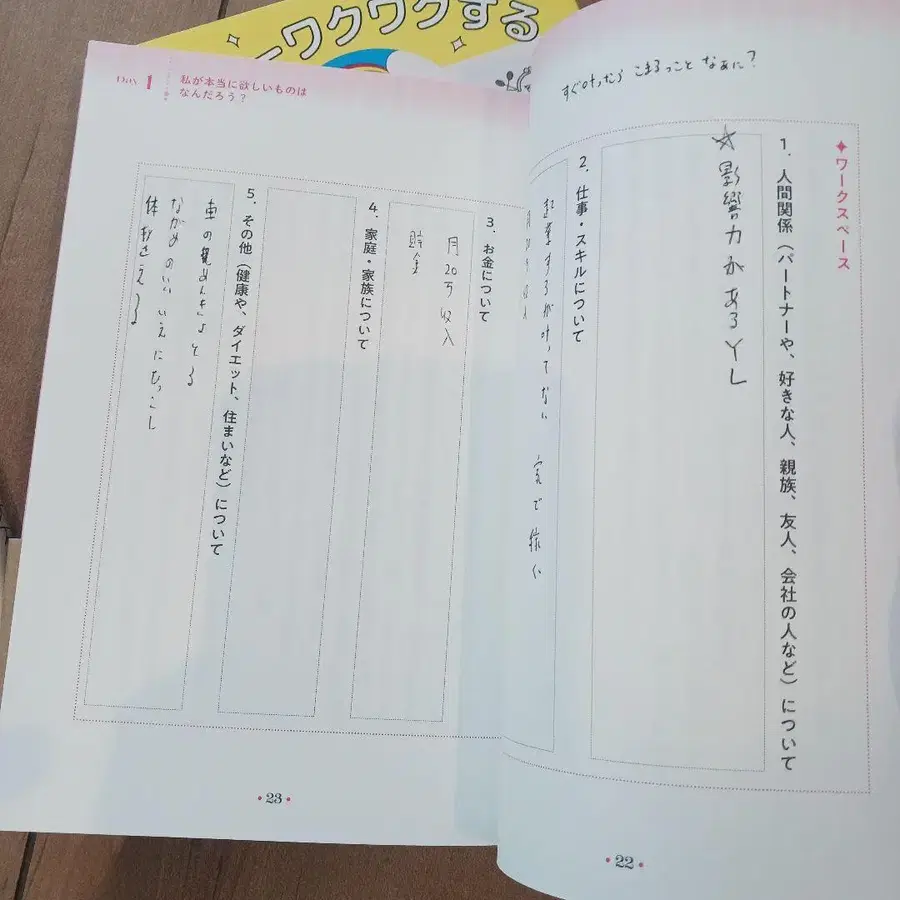 ーワクワクする
すぐ叶ったら こまるっこと なぁに?
✦ワークスペース
1. 人間関係(パートナーや、好きな人、親族、友人、会社の人など)について
☆影響力がある人し
2. 仕事・スキルについて
起業するが叶ってない 家で稼ぐ
・22・
Day 1
私が本当に欲しいものは
なんだろう?
3. お金について
月20万収入
貯金
4. 家庭・家族について
5. その他(健康や、ダイエット、住まいなど)について
車の免めんきょとる
ながめのいい いえに ひっこし
体
・23・